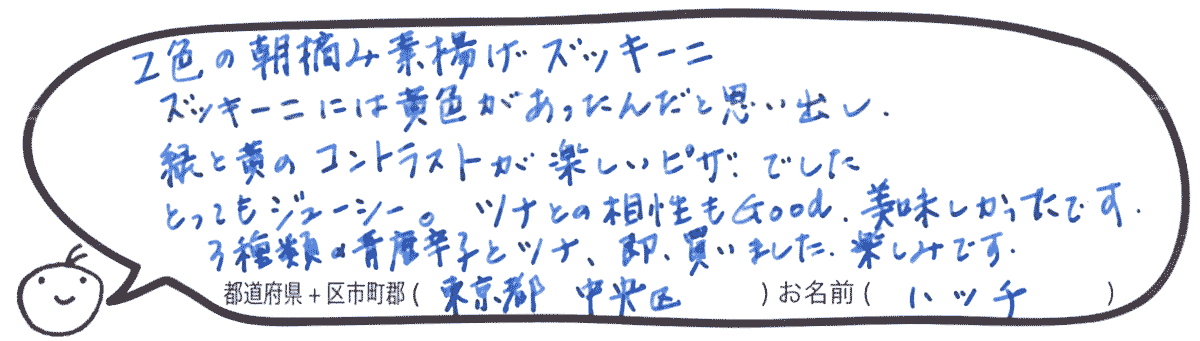 2色の朝摘み素揚げズッキーニ
ズッキーニには黄色があったんだと思い出し、
緑と黄のコントラストが楽しいピザでした
とってもジューシー。ツナとの相性もGood、美味しかったです。
3種類の青唐辛子とツナ、即、買いました。楽しみです。
都道府県+区市町郡(東京都 中央区)お名前(ハッチ)